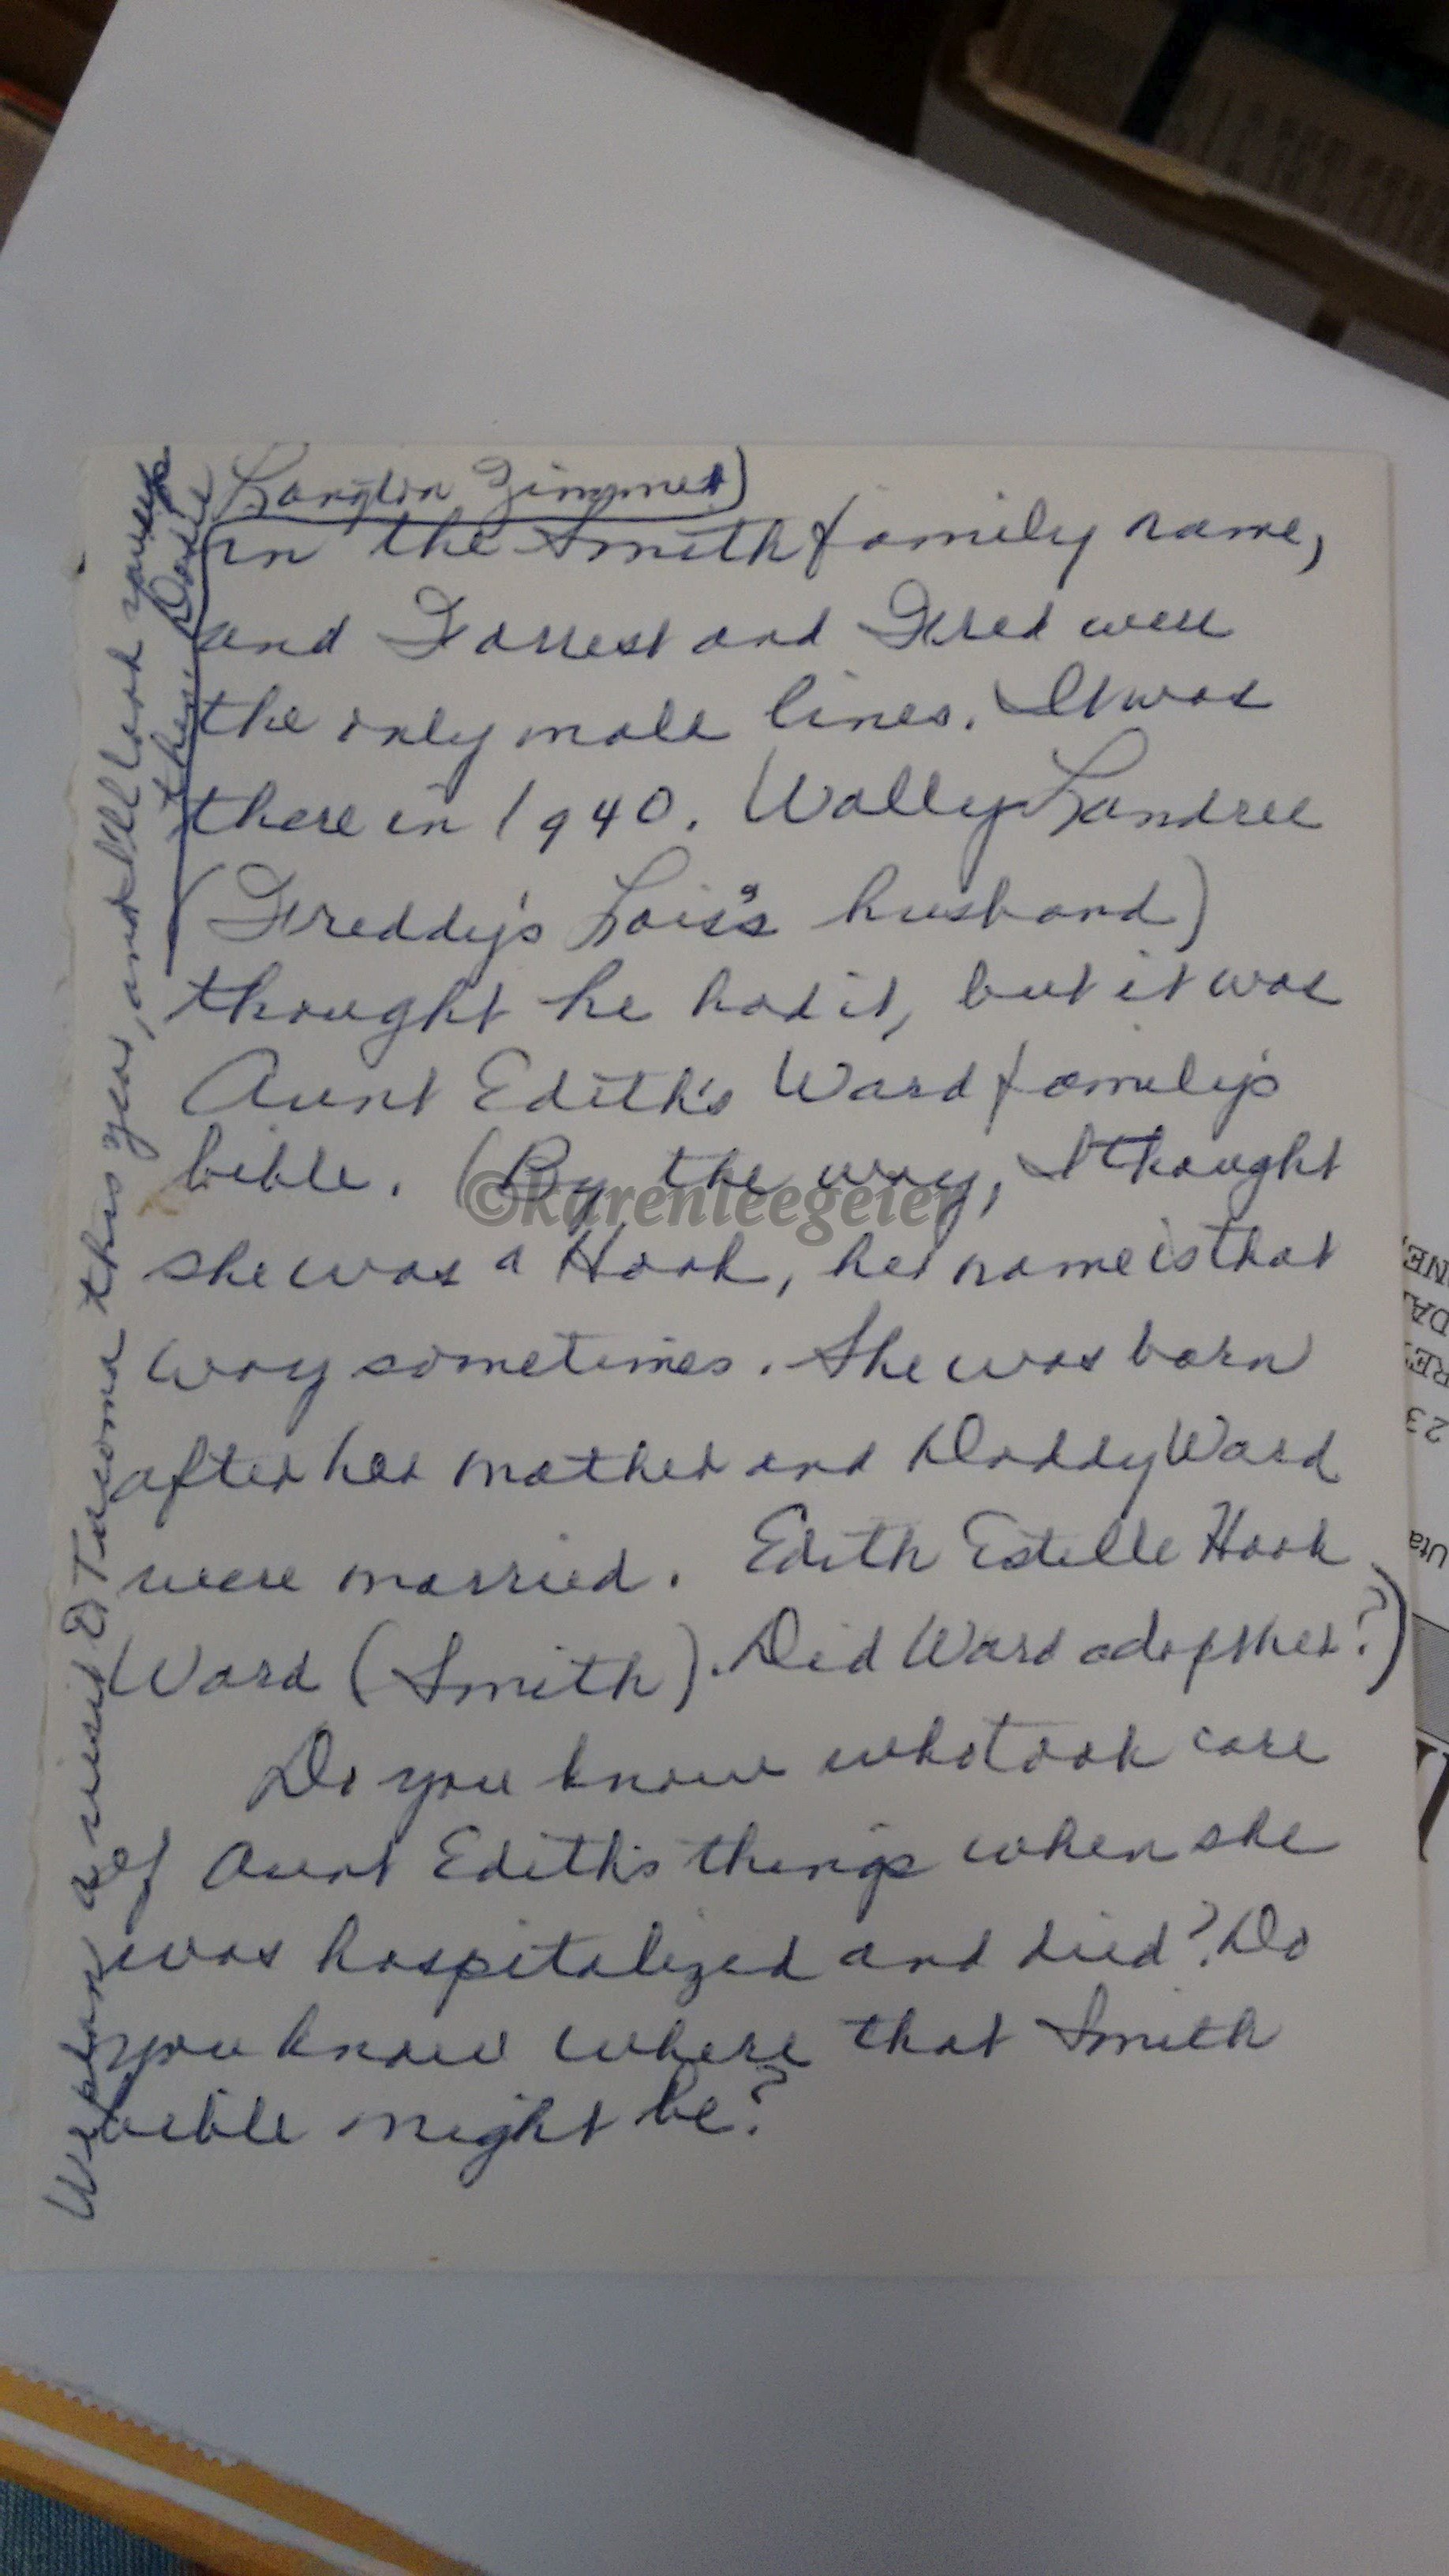 Langton Zimmer)
in the Smith family name,
and Forrest and Fred were
the only male lines. It was
there in 1940. Wally Landree
(Freddy's Lois's husband)
thought he had it, but it was
Aunt Edith's Ward family's
bible. (By the way, I thought
she was a Hook, her name is that
way sometimes. She was born
after her mother and Daddy Ward
were married. Edith Estelle Hook
Ward (Smith). Did Ward adopt her?)
Do you know who took care
of Aunt Edith's things when she
was hospitalized and died? Do
you know where that Smith
bible might be?
We plan a visit to Tacoma this year, and I'll look you up
then.
©karenleegeier
NE,
DA
RE
23
Uta